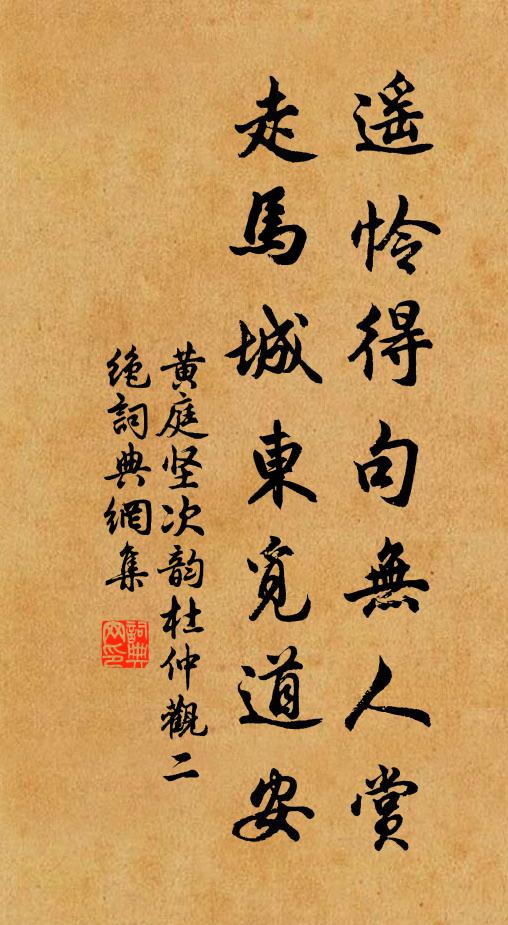 遥怜得句無人赏
走馬城東覓道安
黄庭坚次韵杜仲觀二
绝詞典網集
詞典
网印